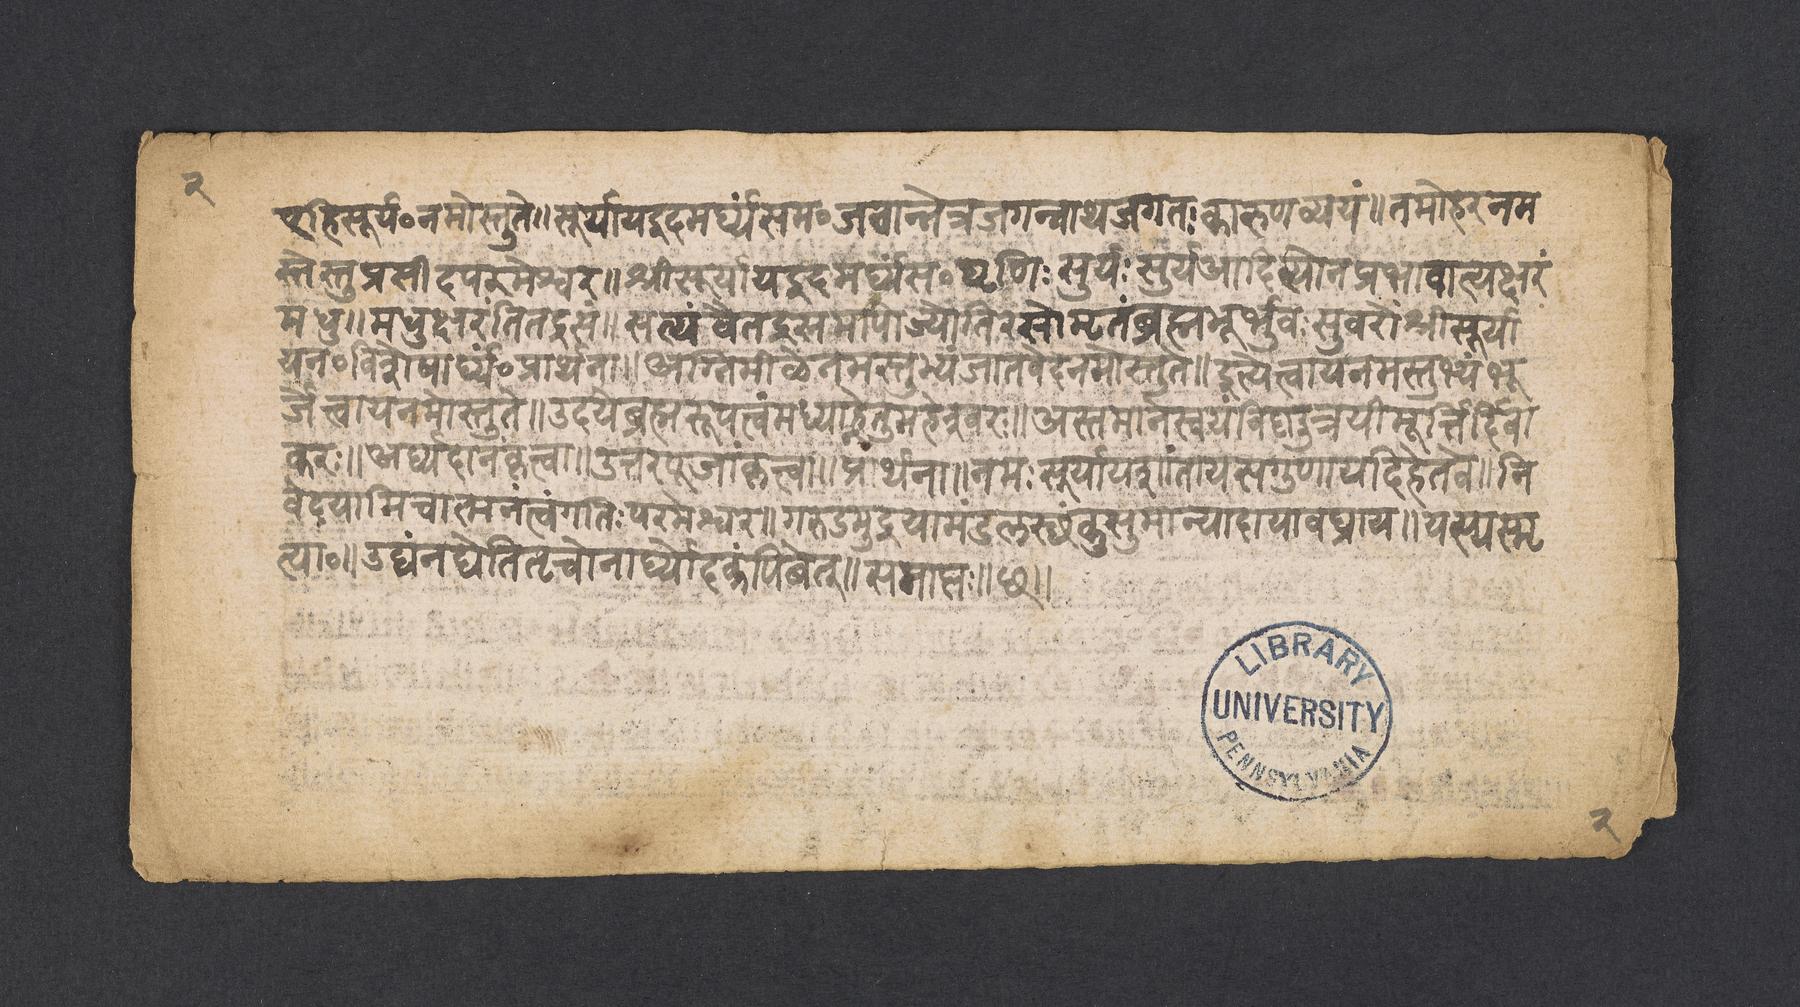 २
एहिसूर्य॰नमोस्तुते॥सूर्यायइदमर्घ्यंसम॰जचान्तेत्रजगन्नाथजगतःकारुणव्ययं॥तमोहरनम
स्तेस्तुप्रसीदपरमेश्वर॥श्रीसूर्यायइदमर्घ्यंस॰घृणिःसूर्यःसूर्यआदित्योनप्रभावात्यक्षरं
मधु॥मधुक्षरंतितद्रसं॥सत्यंवैतद्रसमापोज्योतिरसोमृतंब्रह्मभूर्भुवःसुवरोंश्रीसूर्या
यन॰विशेषार्घ्यं॰प्रार्थना॥अग्निमीळेनमस्तुभ्यंजातवेदनमोस्तुते॥इत्येत्वायनमस्तुभ्यंभू
र्जेत्वायनमोस्तुते॥उदयेब्रह्मरूपत्वंमध्याह्नेतुमहेश्वरः॥अस्तमानेस्वयंविष्णुत्रयीमूर्त्तिर्दिवा
करः॥अर्घ्यदानंकृत्वा॥उत्तरपूजांकृत्वा॥प्रार्थना॥नमःसूर्यायशांतायसगुणायदिहेतवे॥नि
वेदयामिचात्मनंत्वंगतिःपरमेश्वर॥गरुडमुद्रयामंडलस्थंकुसुमान्यादायावघ्राय॥यस्यस्मृ
त्या॰॥उद्यंनद्येतितृचोनार्घ्योदकंपिबेत्॥समाप्तः॥छ॥
LIBRARY
UNIVERSITY
PENNSYLVANIA
२